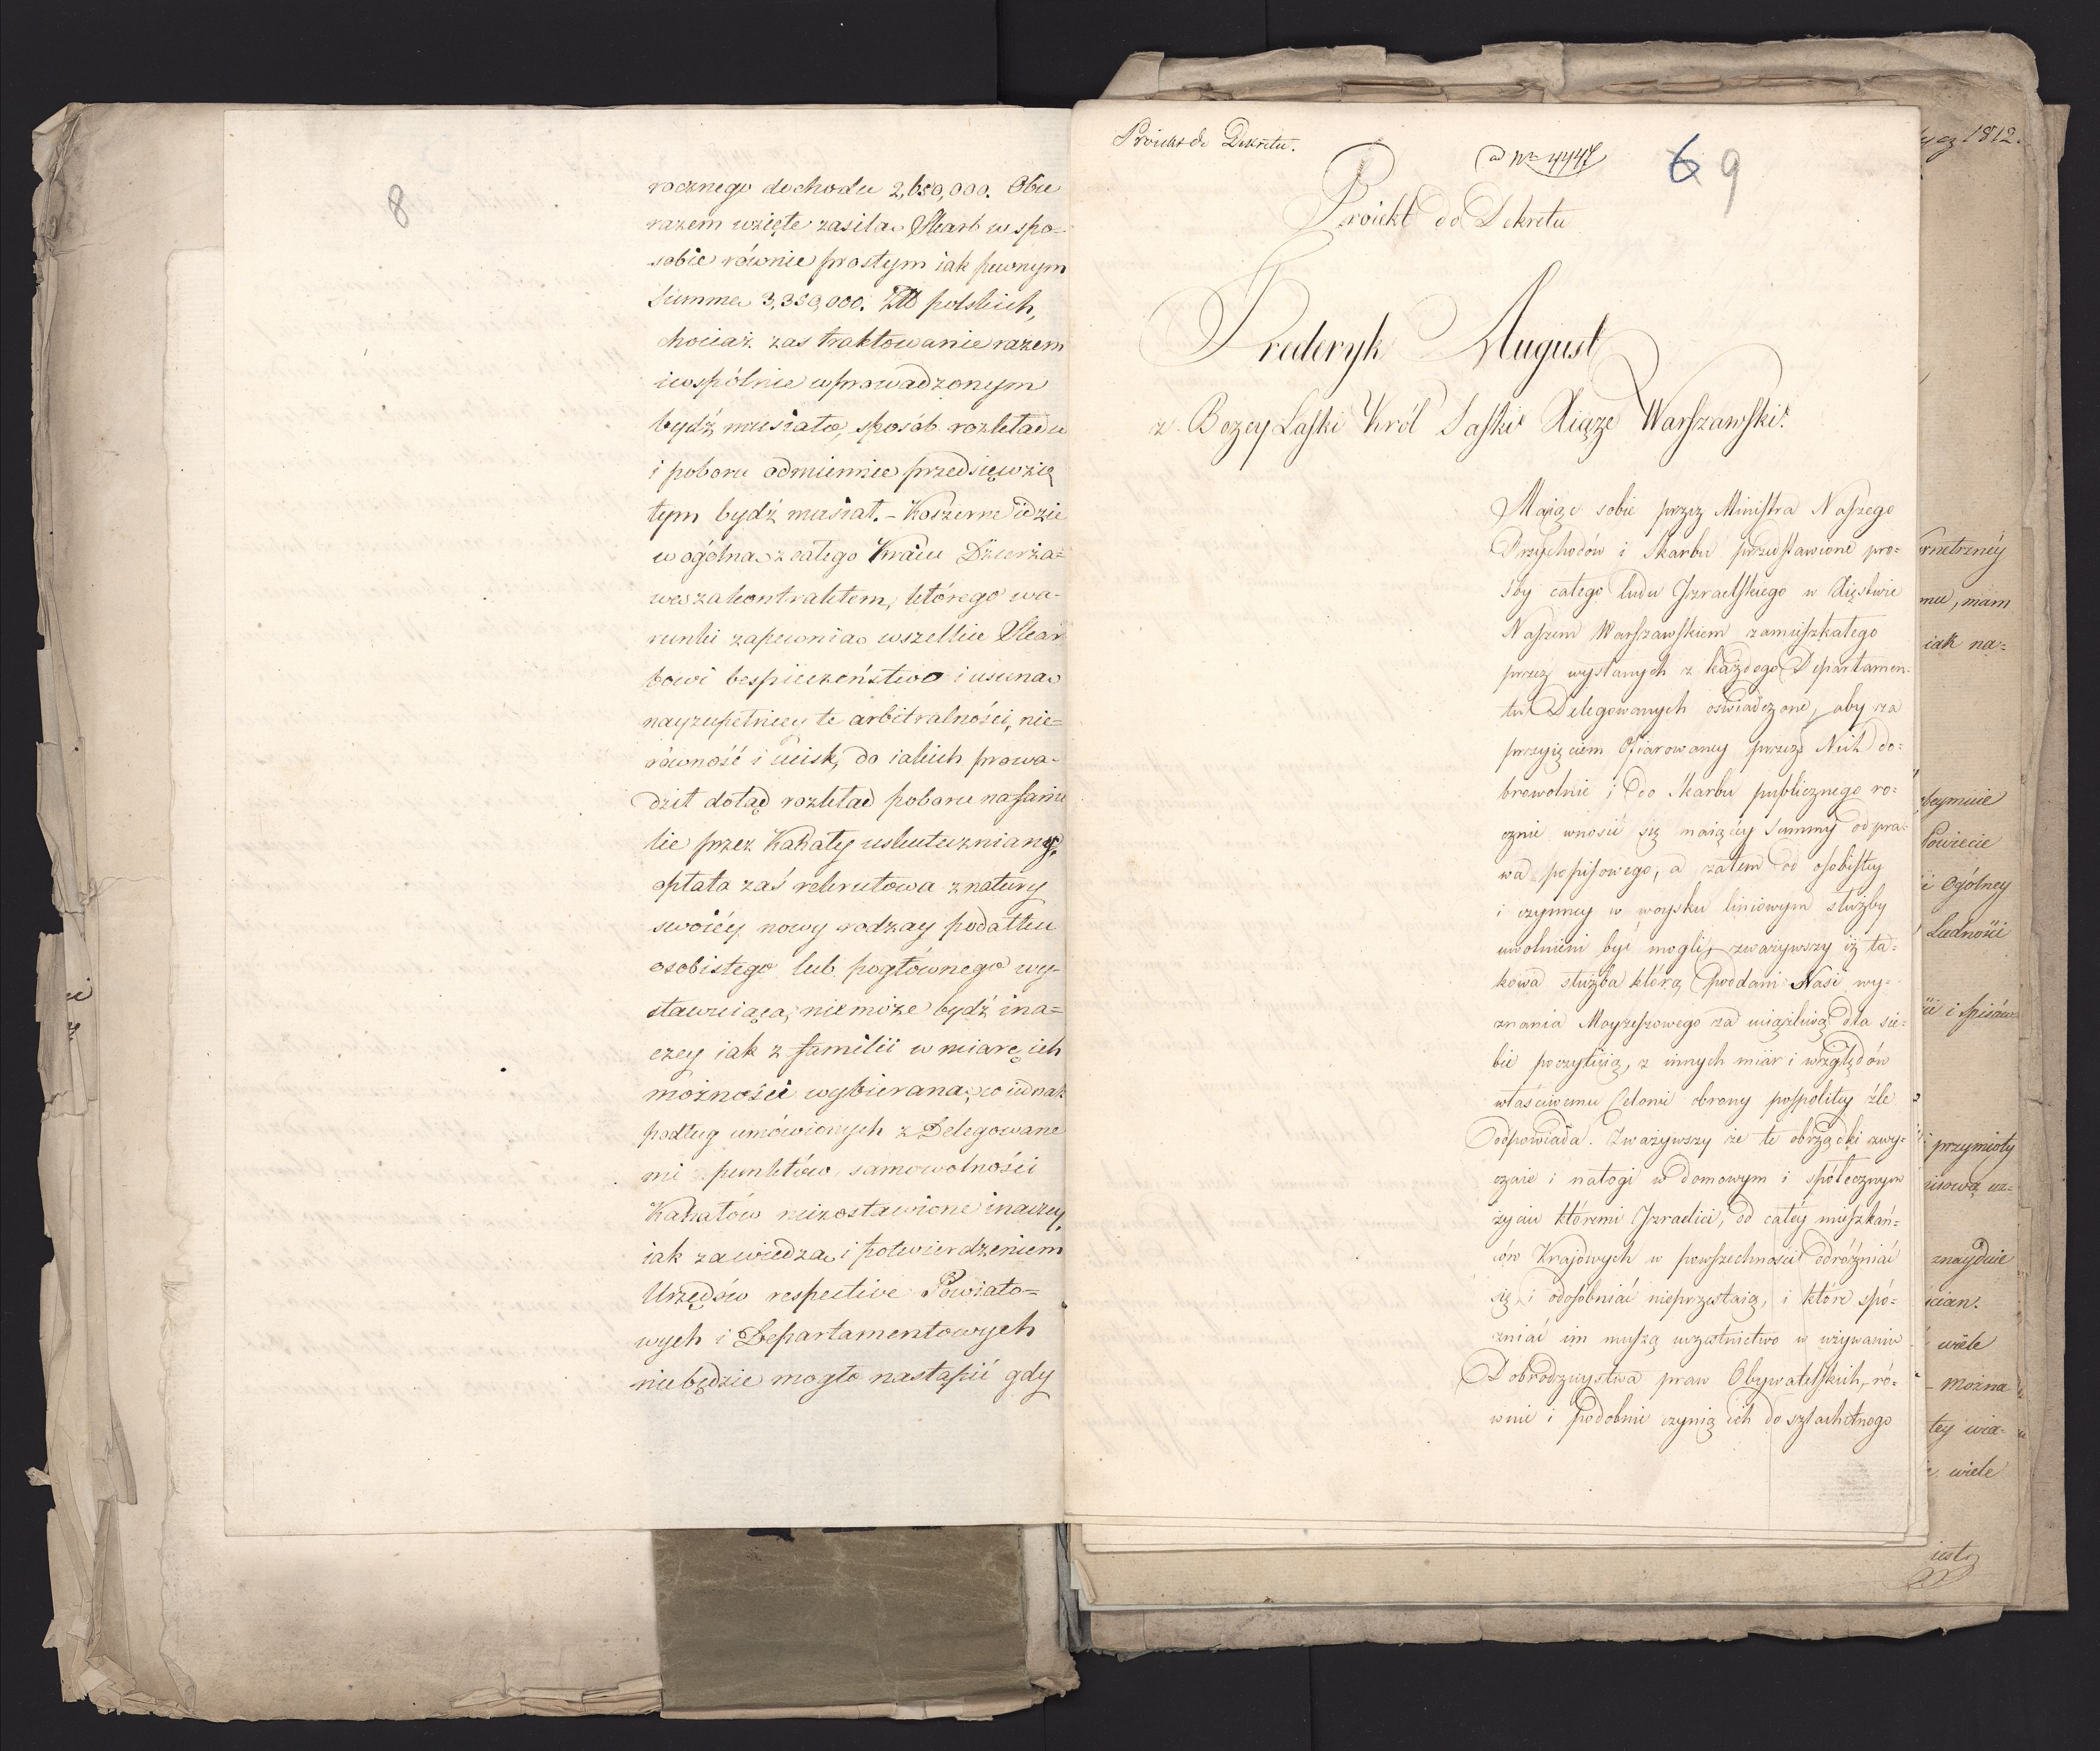 8
rocznego dochodu 2,650,000. Obie
razem wzięte zasilą Skarb w spo=
sobie równie prostym iak pewnym
Summą 3,350,000. Złł polskich,
chociaż zas traktowanie razem
i wspólnie wprowadzonym
bydź musiało, sposób rozkładu
i poboru odmiennie przedsięwzię
tym bydź musiał. – Koszerne idzie
w ogólną z całego Kraiu Dzierża=
wę za kontraktem, którego wa-
runki zapewnią wszelkie Skar
bowi bespieczeństwo i usuną
nayzupełniey te arbitralności, nie=
równość i ucisk, do iakich prowa-
dził dotąd rozkład poboru na fami
lie przez Kahały uskuteczniany,
opłata zaś rekrutowa z natury
swoiéy nowy rodzay podatku
osobistego lub pogłównego wy-
stawuiąca, niemoże bydź ina=
czey iak z familii w miarę ich
możności wybierana, co iednak
podług umówionych z Delegowane
mi punktów, samowolności
Kahałów niezostawione inaczey,
iak za wiedzą i potwierdzeniem
Urzędów respective Powiato=
wych i Departamentowych
niebędzie mogło nastąpić gdy
Proiekt do Dekretu.
ad Nro 4447
6 9
Proiekt do Dekretu
Frederyk August
z Bożey Łaski Król Saski Xiąże Warszawski.
Maiąc sobie przez Ministra Naszego
Przychodów i Skarbu przedstawione pro=
śby całego ludu Izraelskiego w Xięstwie
Naszem Warszawskiem zamieszkałego
przez wysłanych z każdego Departamen=
tu Delegowanych oświadczone, aby za
przyięciem Ofiarowaney przez Nich do=
browolnie i do Skarbu publicznego ro=
cznie wnosić się maiącey Summy od pra=
wa popisowego, a zatem od osobistey
i czynney w woysku liniowym służby
uwolnieni być mogli, zważywszy iż ta=
kowa służba którą poddani Nasi wy=
znania Mayżeszowego za uciążliwą dla sie=
bie poczytuią, z innych miar i względów
właściwemu Celowi obrony pospolitey źle
odpowiada. Zważywszy że te obrządki zwy=
czaie i nałogi w domowym i społecznym
życiu któremi Izraelici, od całey mieszkań=
ców Krajowych w powszechności odróżniać
się i odosobniać nieprzestaią, i które spó=
zniać im muszą uczestnictwo w używaniu
Dobrodzieystwa praw Obywatelskich, ró=
wnie i podobnie czynią ich do szlachetnego
1812.
iak na=
Powiecie
i Ogólney
Ludności
i przymioty
znayduie
wiele
– Można
tey wia=
wiele